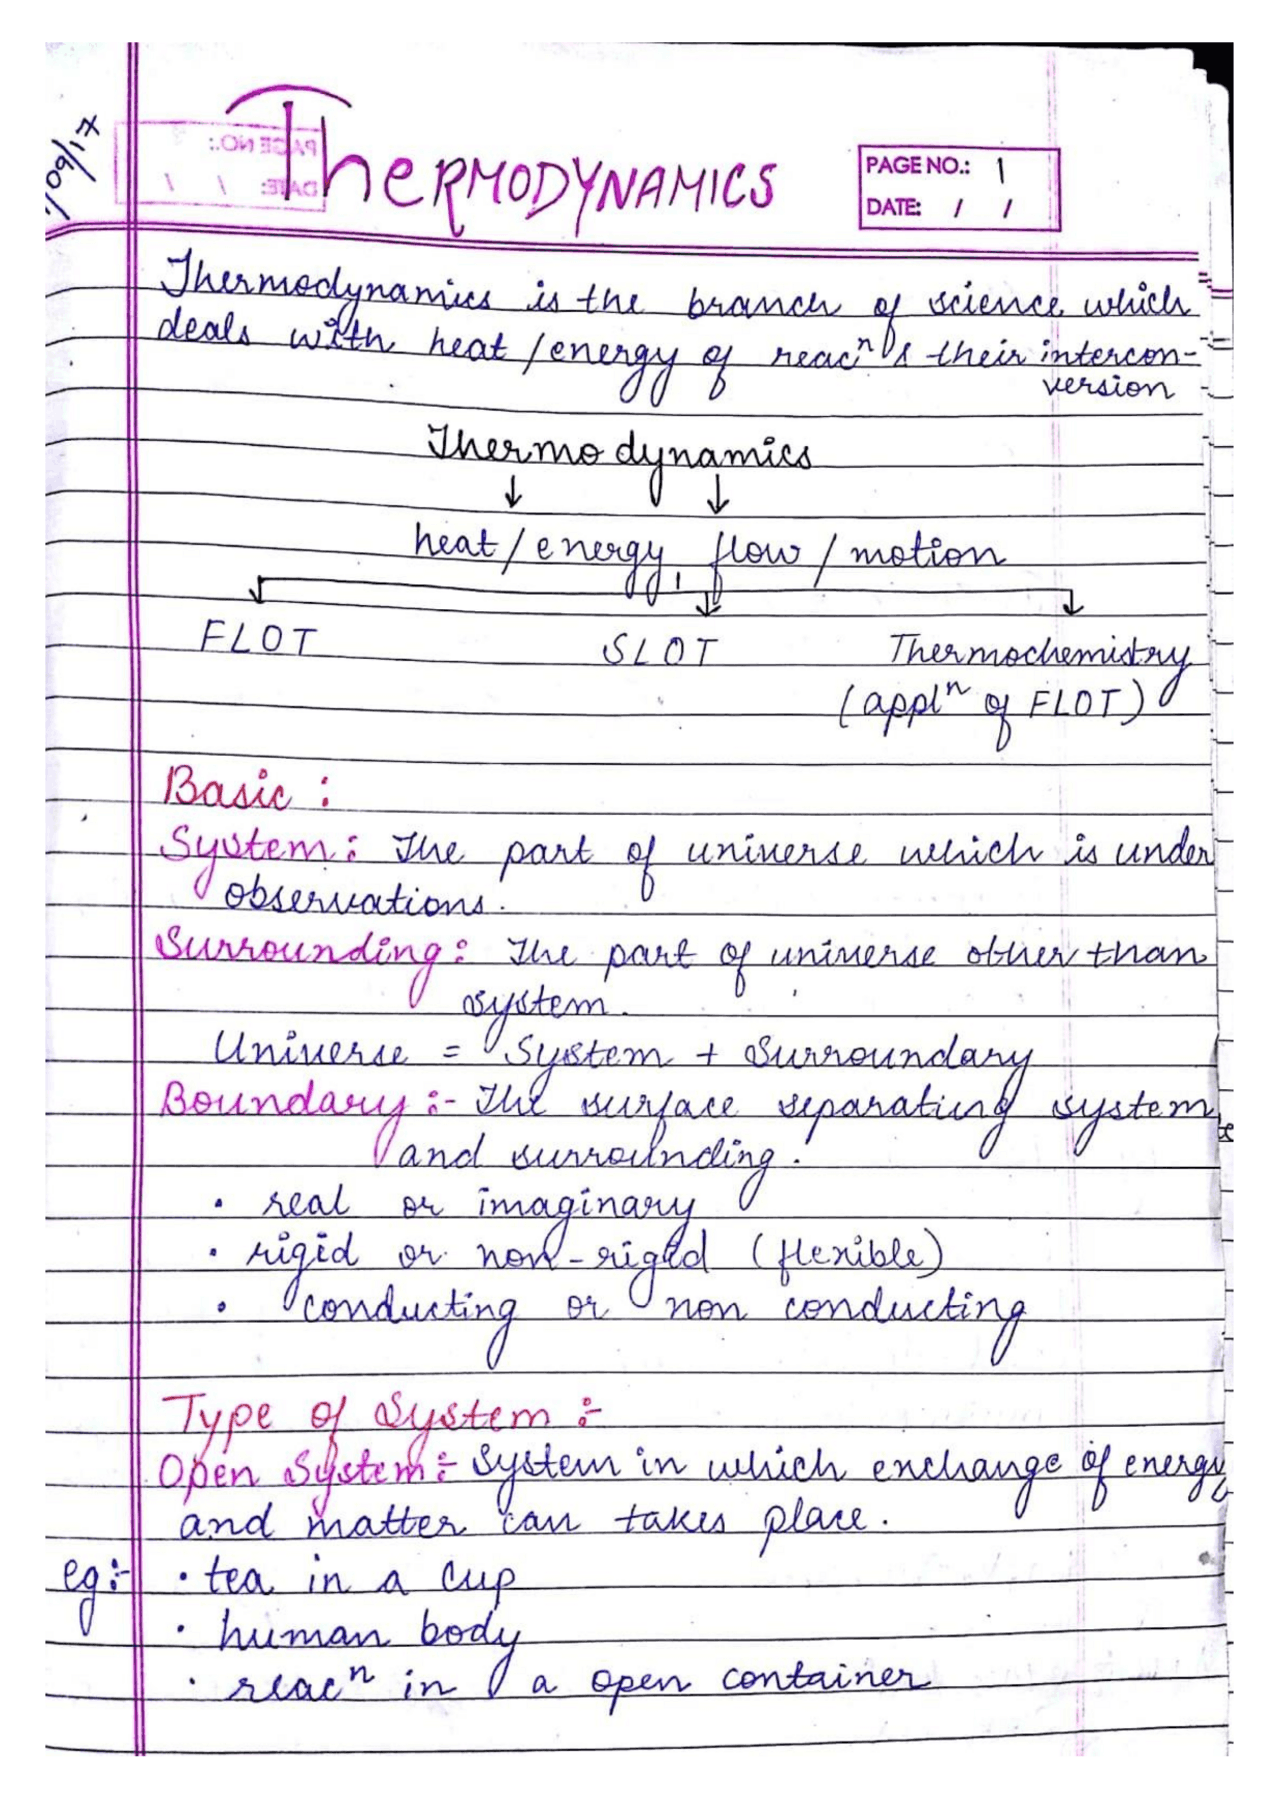 /09/17
THERMODYNAMICS
PAGE NO.: 1
DATE: / /
PAGE NO.:
DATE: / /
Thermodynamics is the branch of science which
deals with heat/energy of reacⁿ & their intercon-
version
Thermodynamics
↓ ↓
heat/energy flow/motion
FLOT SLOT Thermochemistry
(applⁿ of FLOT)
Basic :
System: The part of universe which is under
observations.
Surrounding: The part of universe other than
system.
Universe = System + Surroundary
Boundary :- The surface separating system
and surrounding.
• real or imaginary
• rigid or non-rigid (flexible)
• conducting or non conducting
Type of System :-
Open System :- System in which exchange of energy
and matter can takes place.
eg:- • tea in a cup
• human body
• reacⁿ in a open container